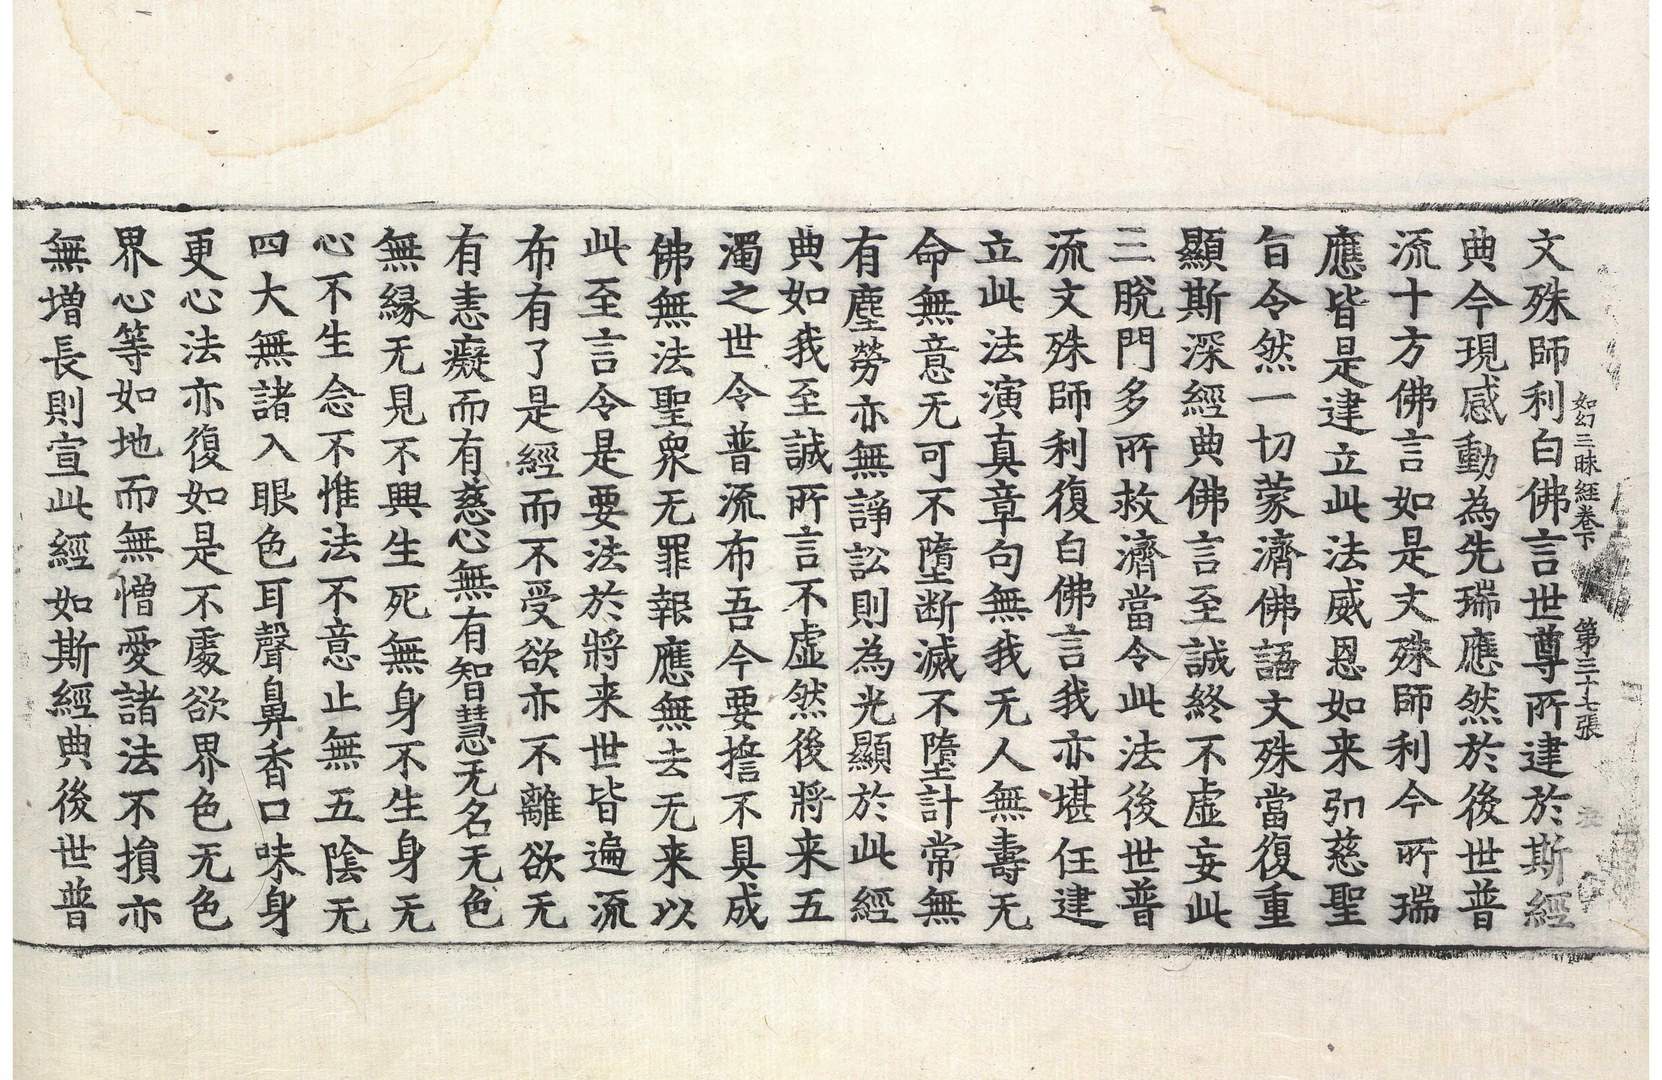 如幻三昧経卷下 第三十七張
文殊師利白佛言世尊所建於斯經
典今現感動為先瑞應然於後世普
流十方佛言如是文殊師利今所瑞
應皆是建立此法威恩如来㓨慈聖
旨令然一切蒙濟佛語文殊當復重
顯斯深經典佛言至誠終不虛妄此
三脫門多所救濟當令此法後世普
流文殊師利復白佛言我亦堪任建
立此法演真章句無我无人無壽无
命無意无可不墮断滅不墮計常無
有塵勞亦無諍訟則為光顯於此經
典如我至誠所言不虛然後將来五
濁之世令普流布吾今要擔不具成
佛無法聖衆无罪報應無去无来以
此至言令是要法於將来世皆遍流
布有了是經而不受欲亦不離欲无
有恚癡而有慈心無有智慧无名无色
無縁无見不興生死無身不生身无
心不生念不惟法不意止無五陰无
四大無諸入眼色耳聲鼻香口味身
更心法亦復如是不處欲界色无色
界心等如地而無憎愛諸法不損亦
無増長則宣此經如斯經典後世普